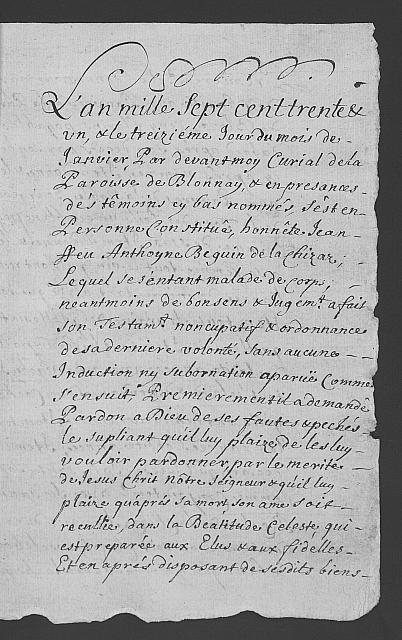 L'an mille Sept cent trente &
vn, & le treiziéme Jour du mois de -
Janvier Par devant moy Curial de la
Paroisse de Blonnay, & en presances -
dés témoins cy bas nommés s'est en -
Personne Constituê, honnête Jean -
ffeu Anthoyne Beguin de la Chizaz;
Lequel se sentant malade de Corps;
néantmoins de bon sens & Jugemt. a fait
son Testamt. noncupatif & ordonnance
de sa derniere volonté, sans aucune - -
Induction ny subornation aparuë Comme
s'ensuit Premierement il a demandé
Pardon a Dieu de ses fautes & pechés
le supliant qu'il luy plaize de les luy -
vouloir pardonner par le merite -
de Jesus Chris nôtre seigneur & quil luy
plaize quáprés sa mort, son ame soit -
recullie, dans la Beatitude Celeste qui -
est preparée aux Elus & aux fidélles -
Et en aprés disposant de sesdits biens -